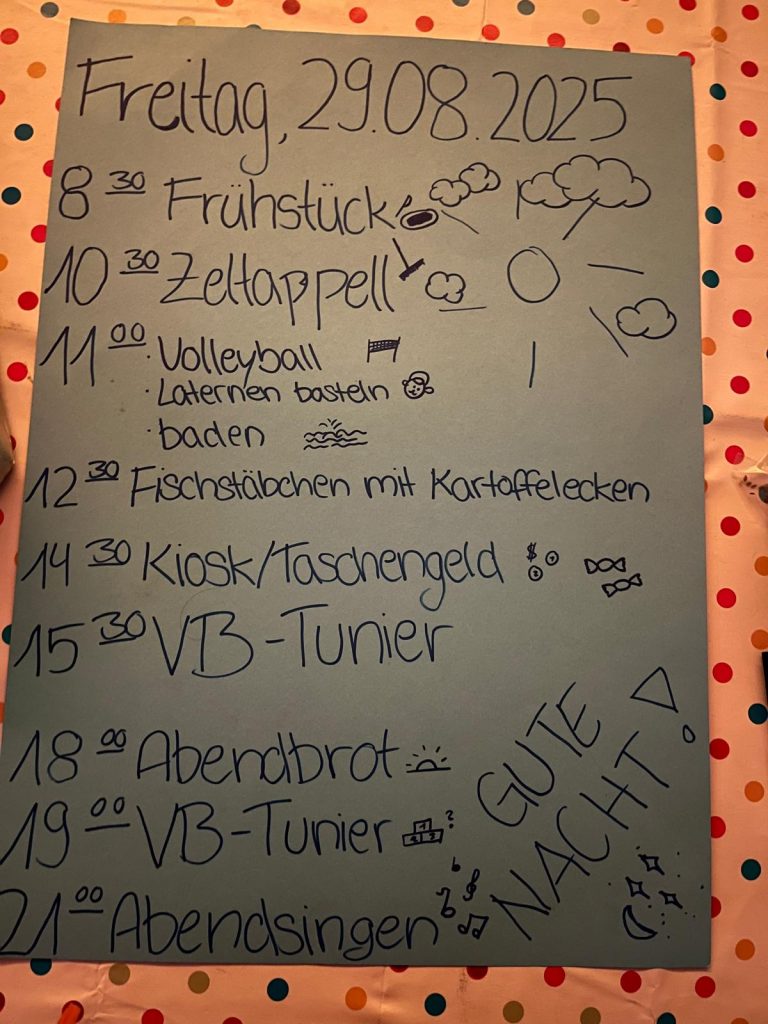 Freitag, 29.08.2025
8 30 Frühstück
10 30 Zeltappell
11 00 · Volleyball
· Laternen basteln
· baden
12 30 Fischstäbchen mit Kartoffelecken
14 30 Kiosk/Taschengeld
15 30 VB-Tunier
18 00 Abendbrot
19 00 VB-Tunier
21 00 Abendsingen
GUTE
NACHT!